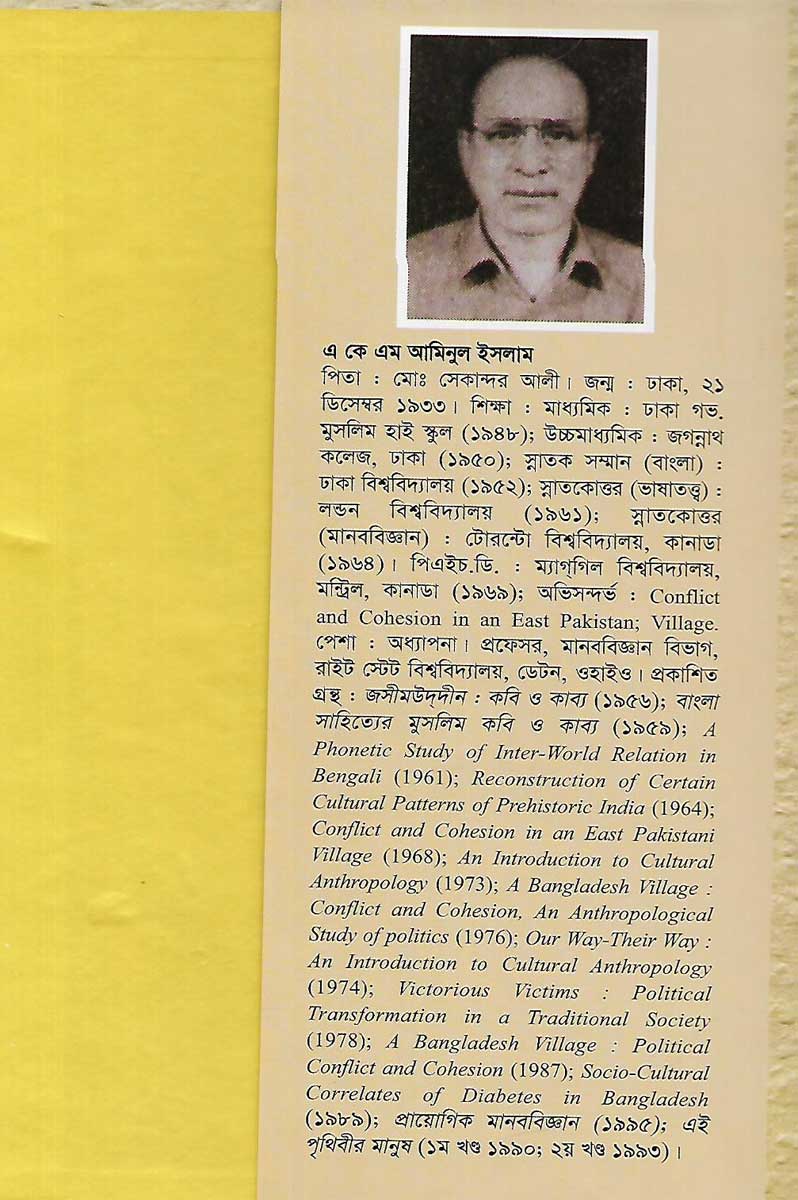 এ কে এম আমিনুল ইসলাম
পিতা : মোঃ সেকান্দর আলী। জন্ম : ঢাকা, ২১
ডিসেম্বর ১৯৩৩। শিক্ষা : মাধ্যমিক : ঢাকা গভ.
মুসলিম হাই স্কুল (১৯৪৮); উচ্চমাধ্যমিক : জগন্নাথ
কলেজ, ঢাকা (১৯৫০); স্নাতক সম্মান (বাংলা) :
ঢাকা বিশ্ববিদ্যালয় (১৯৫২); স্নাতকোত্তর (ভাষাতত্ত্ব) :
লন্ডন বিশ্ববিদ্যালয় (১৯৬১); স্নাতকোত্তর
(মানববিজ্ঞান) : টোরন্টো বিশ্ববিদ্যালয়, কানাডা
(১৯৬৪)। পিএইচ.ডি. : ম্যাগ্‌গিল বিশ্ববিদ্যালয়,
মন্ট্রিল, কানাডা (১৯৬৯); অভিসন্দর্ভ : Conflict
and Cohesion in an East Pakistan; Village.
পেশা : অধ্যাপনা। প্রফেসর, মানববিজ্ঞান বিভাগ,
রাইট স্টেট বিশ্ববিদ্যালয়, ডেটন, ওহাইও। প্রকাশিত
গ্রন্থ : জসীমউদ্‌দীন : কবি ও কাব্য (১৯৫৬); বাংলা
সাহিত্যের মুসলিম কবি ও কাব্য (১৯৫৯); A
Phonetic Study of Inter-World Relation in
Bengali (1961); Reconstruction of Certain
Cultural Patterns of Prehistoric India (1964);
Conflict and Cohesion in an East Pakistani
Village (1968); An Introduction to Cultural
Anthropology (1973); A Bangladesh Village :
Conflict and Cohesion, An Anthropological
Study of politics (1976); Our Way-Their Way :
An Introduction to Cultural Anthropology
(1974); Victorious Victims : Political
Transformation in a Traditional Society
(1978); A Bangladesh Village : Political
Conflict and Cohesion (1987); Socio-Cultural
Correlates of Diabetes in Bangladesh
(১৯৮৯); প্রায়োগিক মানববিজ্ঞান (১৯৯৫); এই
পৃথিবীর মানুষ (১ম খণ্ড ১৯৯০; ২য় খণ্ড ১৯৯৩)।